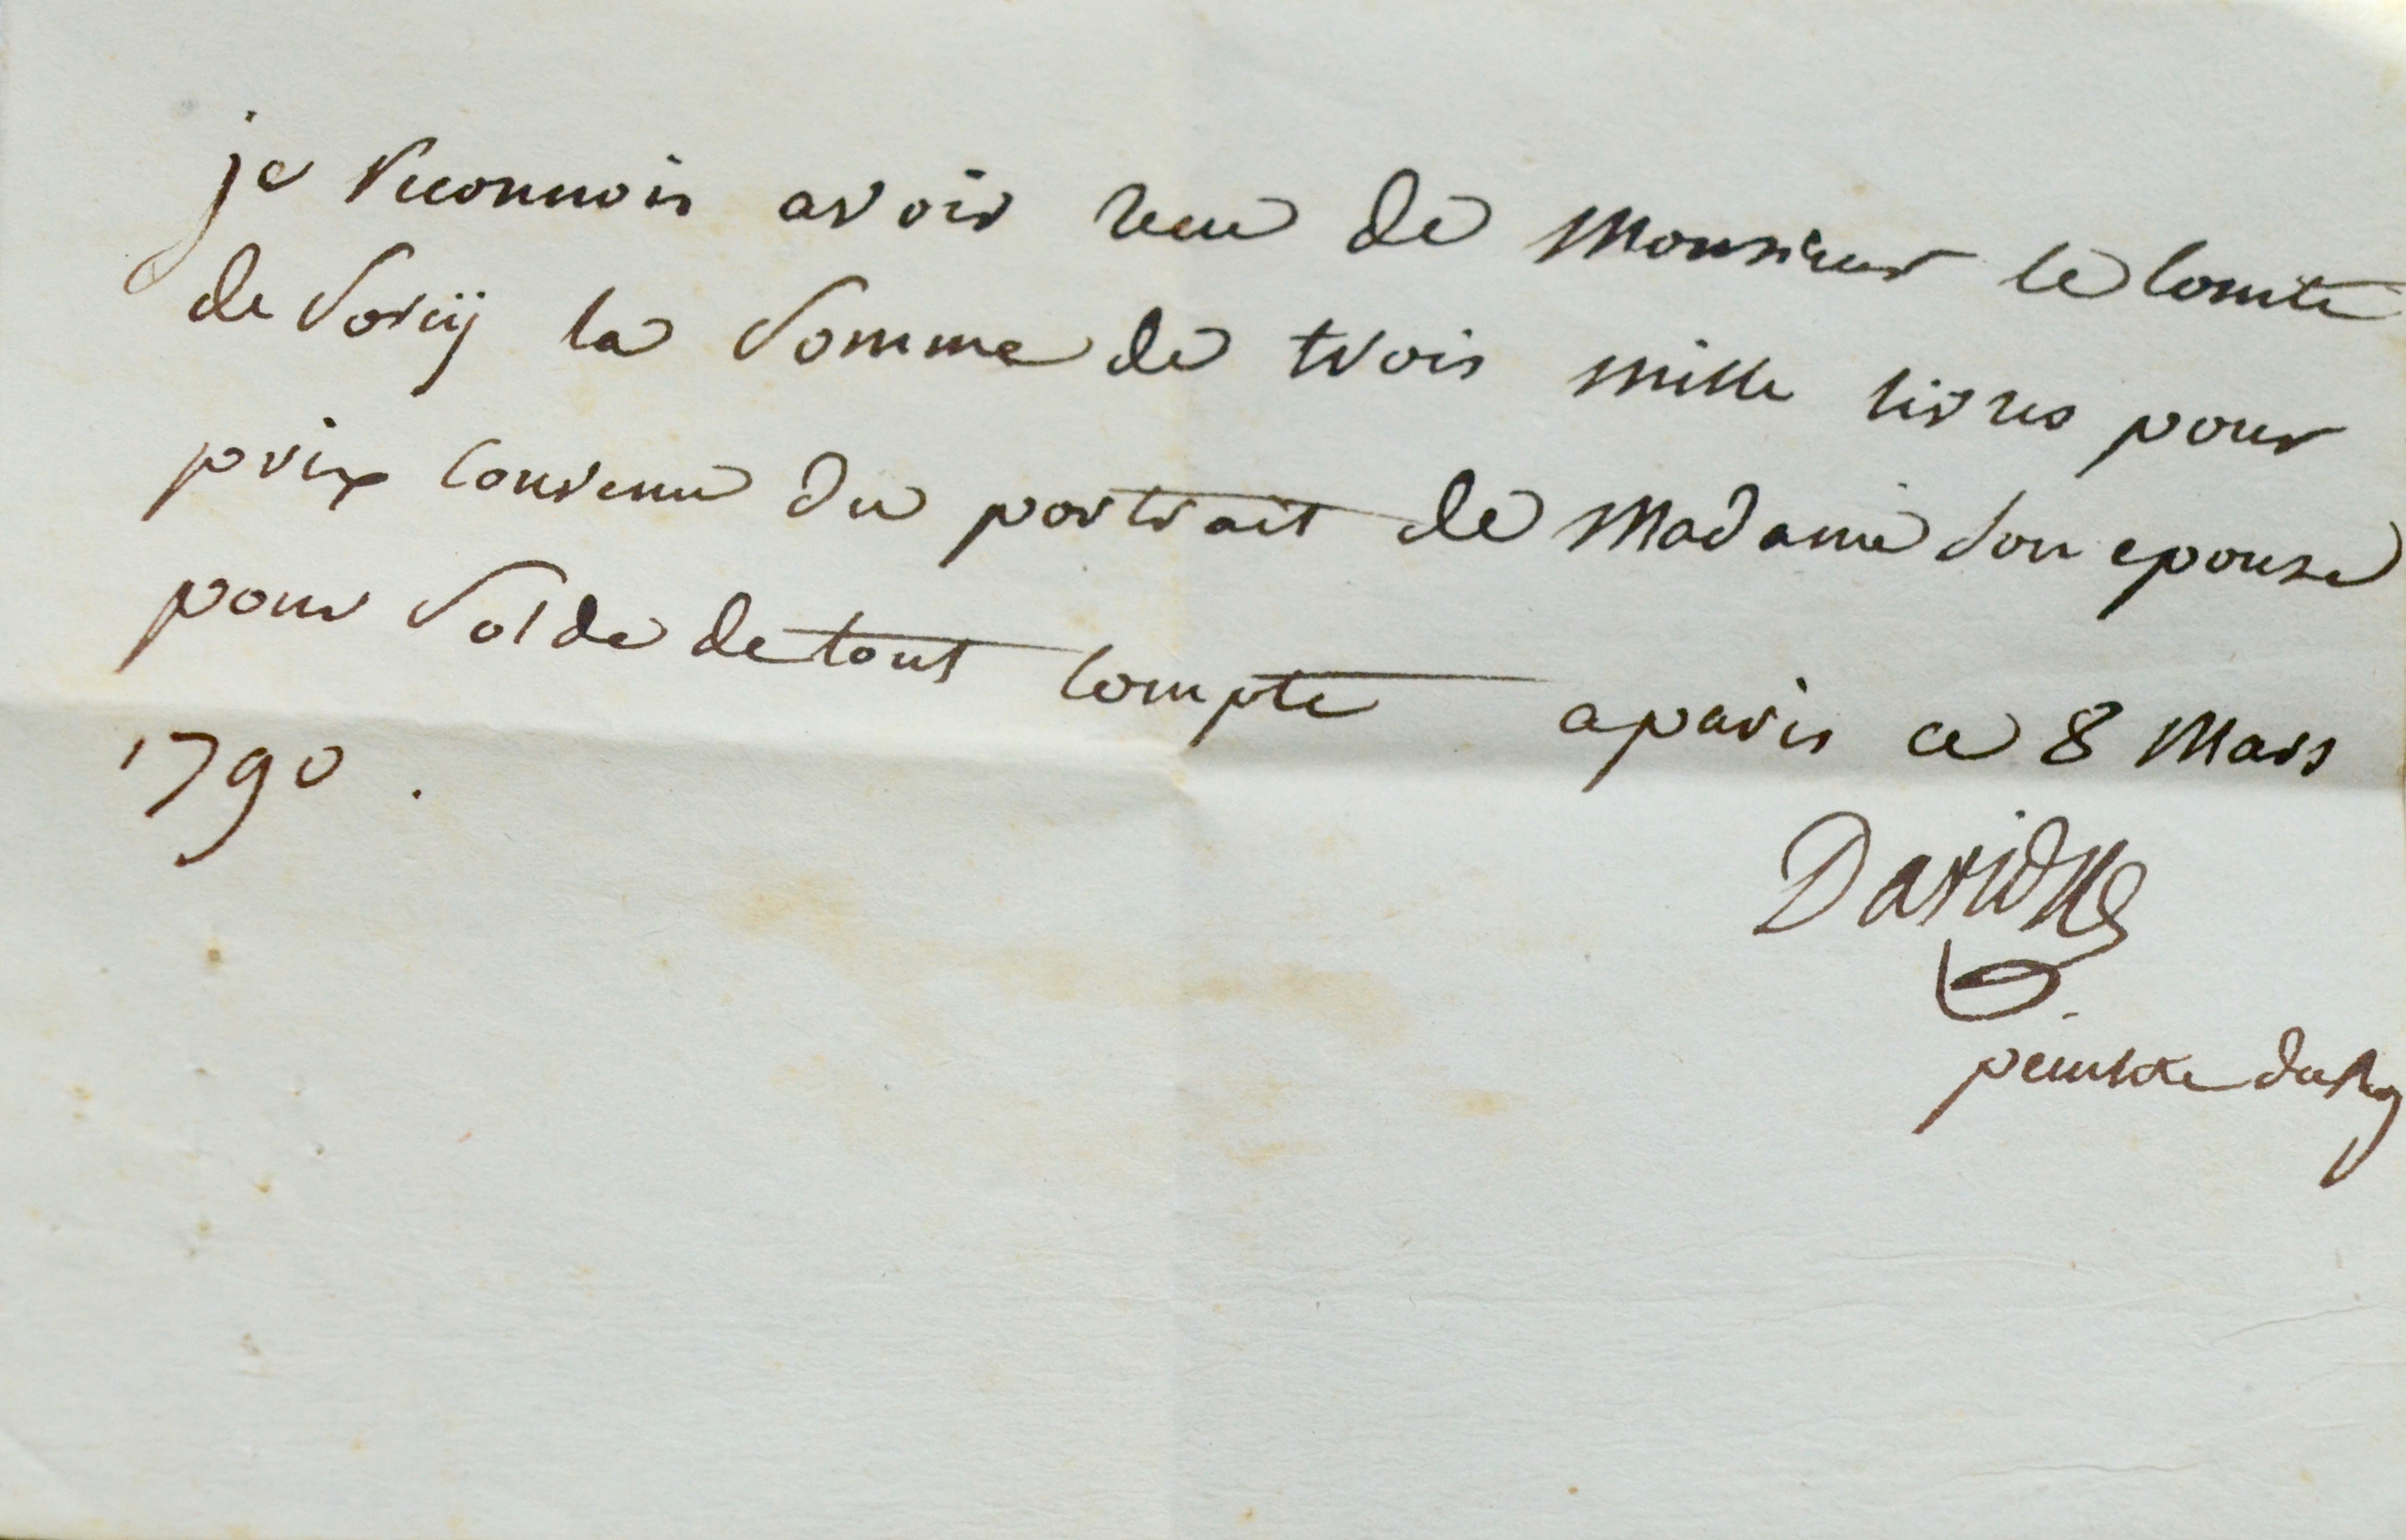 je reconnois avoir recu de Monsieur le Comte
de Sorcÿ la somme de trois mille livres pour
prix convenu du portrait de Madame son epouse
pour solde de tout compte a paris ce 8 Mars
1790.
David
peintre du Roy